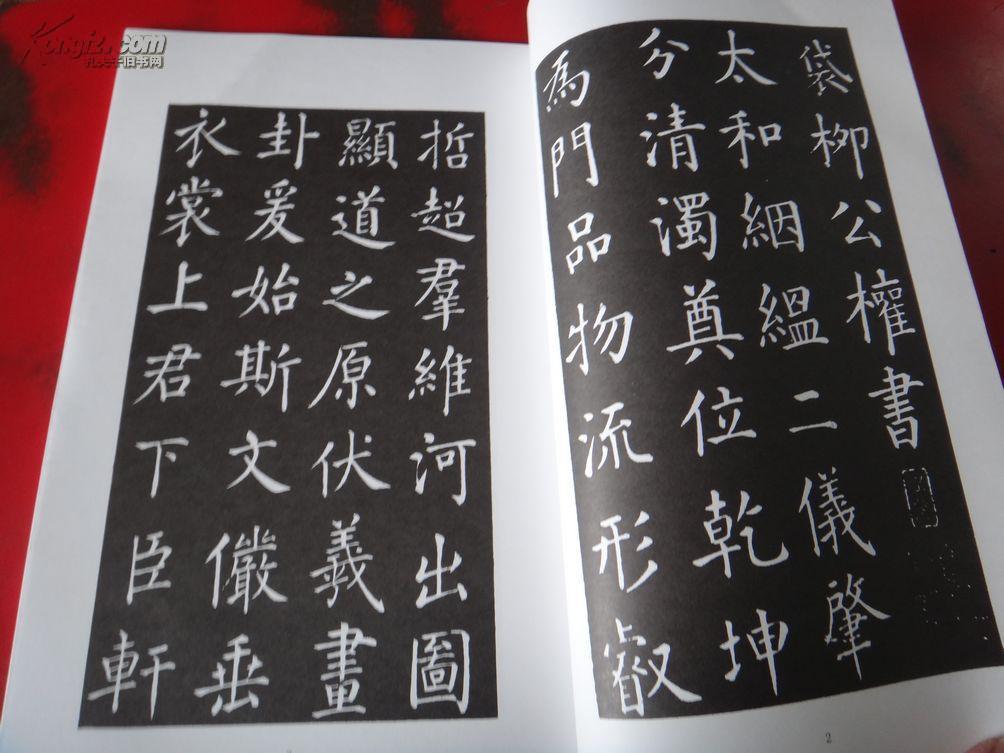 袋柳公權書
太和絪緼二儀肇
分清濁奠位乾坤
為門品物流形叡
2
哲超羣維河出圖
顯道之原伏羲畫
卦爰始斯文儼垂
衣裳上君下臣軒
Kongfz.com
孔夫子旧书网